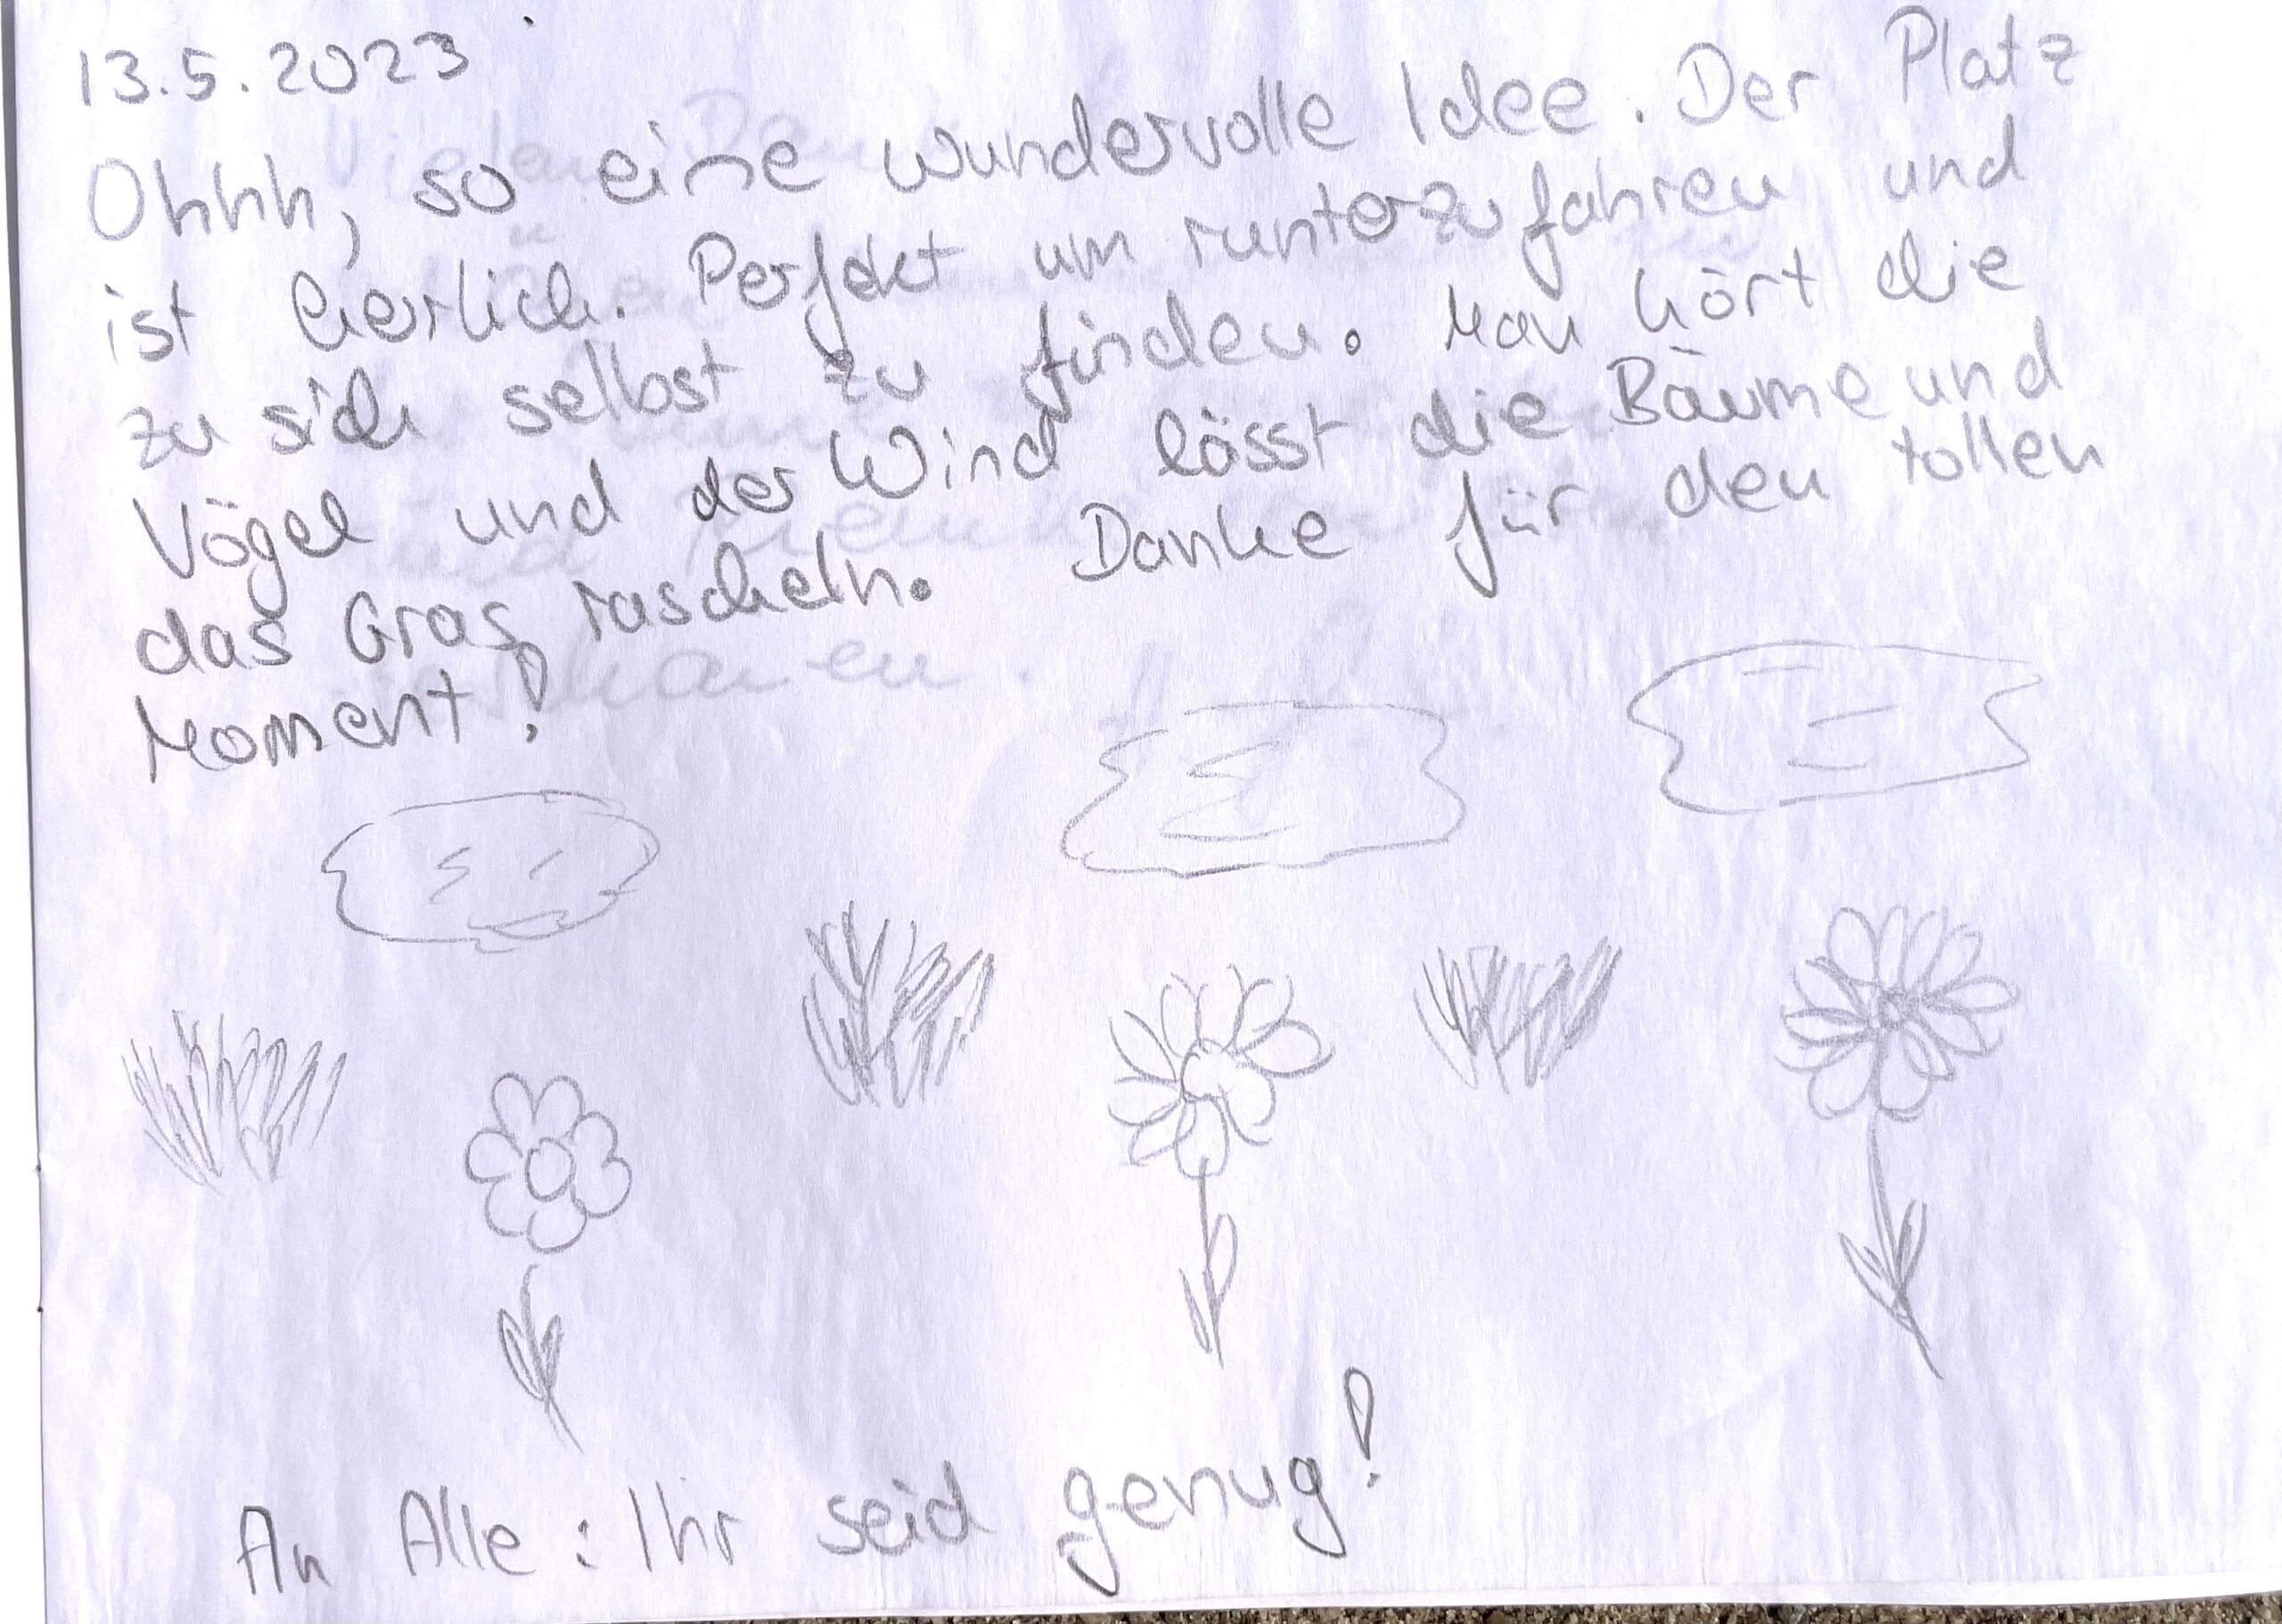 13.5.2023
Ohhh, so eine wundervolle Idee. Der Platz
ist herlich. Perfekt um runterzufahren und
zu sich selbst zu finden. Man hört die
Vögel und der Wind lässt die Bäume und
das Gras rascheln. Danke für den tollen
Moment!
An Alle: Ihr seid genug!